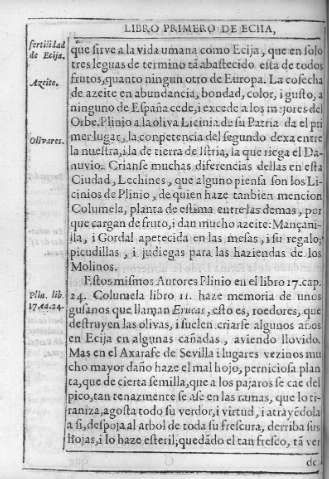 LIBRO PRIMERO DE ECIIA,
fertilidad
de Ecija.
que sirve a la vida umana como Ecija, que en solo
tres leguas de termino tā abastecido esta de todos
Azeite.
frutos, quanto ningun otro de Europa. La cosecha
de azeite en abundancia, bondad, color, i gusto, a
ninguno de España cede, i excede a los mejores del
Orbe. Plinio a la oliva Licinia de su Patria da el pri
Olivares.
mer lugar, la competencia del segundo dexa entre
la nuestra, i la de tierra de Istria, la que riega el Da-
nuvio. Crianse muchas diferencias dellas en esta
Ciudad, Lechines, que alguno piensa son los Li-
cinios de Plinio, de quien haze tanbien mencion
Columela, planta de estima entre las demas, por
que cargan de fruto, i dan mucho azeite: Mançani-
lla, i Gordal apetecida en las mesas, i su regalo;
picudillas, i judiegas para las haziendas de los
Molinos.
Estos mismos Autores Plinio en el libro 17. cap.
Plin. lib.
17. ca. 24.
24. Columela libro 11. haze memoria de unos
gusanos que llaman Erucas, esto es, roedores, que
destruyen las olivas, i suelen criarse algunos años
en Ecija en algunas cañadas, aviendo llovido.
Mas en el Axarafe de Sevilla i lugares vezinos mu
cho mayor daño haze el mal hojo, perniciosa plan
ta, que de cierta semilla, que a los pajaros se cae del
pico, tan tenazmente se ase en las ramas, que lo ti-
raniza, agosta todo su verdor, i virtud, i atrayēdola
a si, despoja al arbol de toda su frescura, derriba sus
hojas, i lo haze esteril, quedādo el tan fresco, tā ver
de